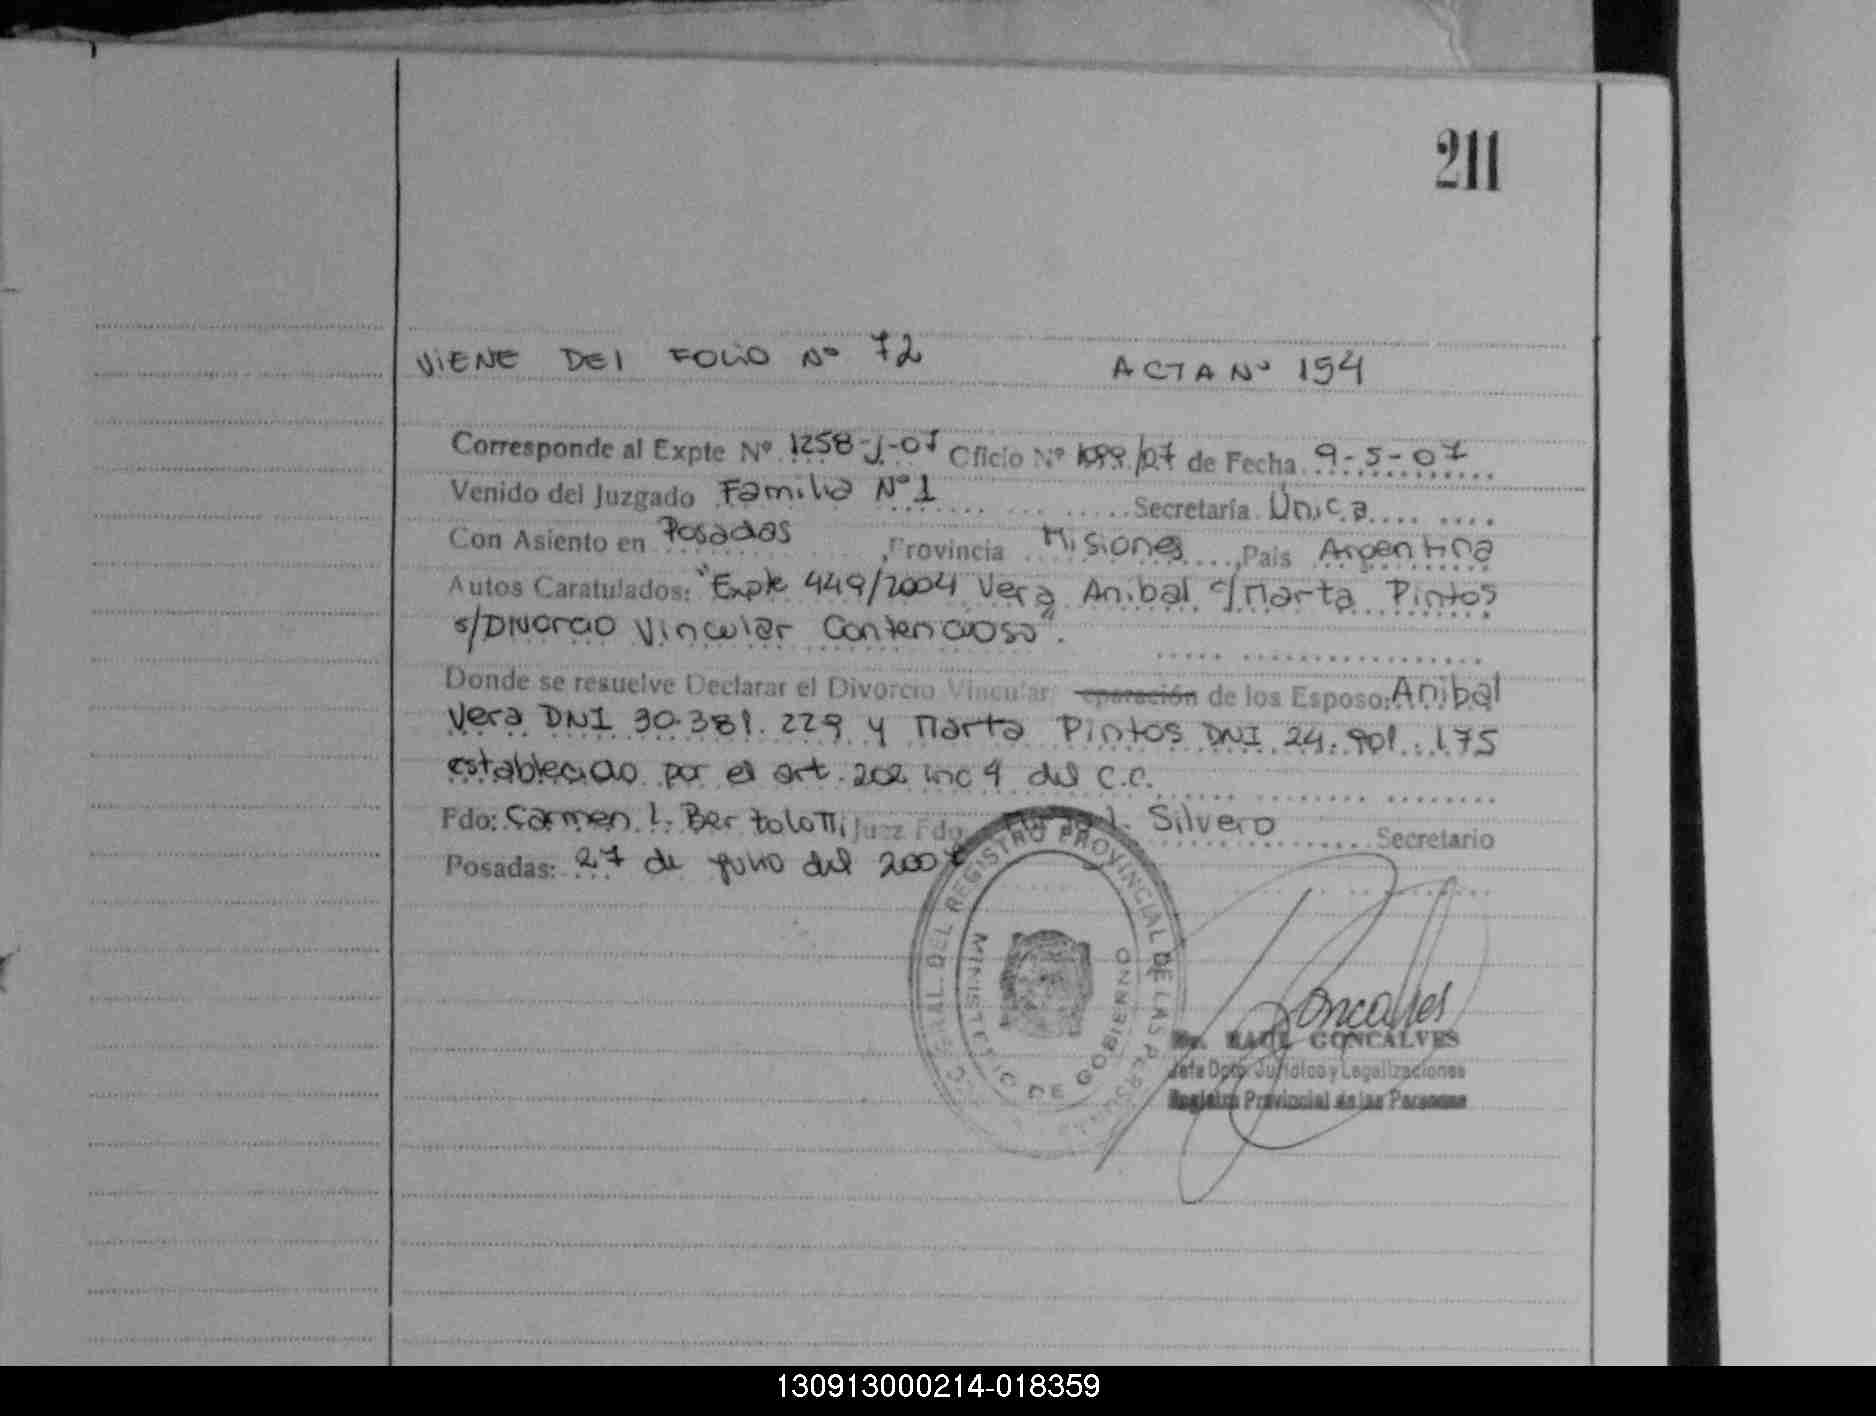 211
VIENE DEL FOLIO Nº 72 ACTA Nº 154
Corresponde al Expte Nº 1258-J-07 Oficio Nº 1099/07 de Fecha 9-5-07
Venido del Juzgado Familia Nº 1 Secretaría Única
Con Asiento en Posadas, Provincia Misiones, País Argentina
Autos Caratulados: "Expte 449/2004 Vera Anibal c/ Marta Pintos
s/Divorcio Vincular Contencioso".
Donde se resuelve Declarar el Divorcio Vincular eparación de los Esposo: Anibal
Vera DNI 30.381.229 y Marta Pintos DNI 24.901.175
establecido por el art. 202 inc 4 del C.C.
Fdo: Carmen L. Bertolotti Juez Fdo L. Silvero Secretario
Posadas: 27 de julio del 2007
REGISTRO PROVINCIAL DE LAS PERSONAS
MINISTERIO DE GOBIERNO
Goncalves
RAUL GONCALVES
Jefe Dpto. Jurídico y Legalizaciones
Registro Provincial de las Personas
130913000214-018359